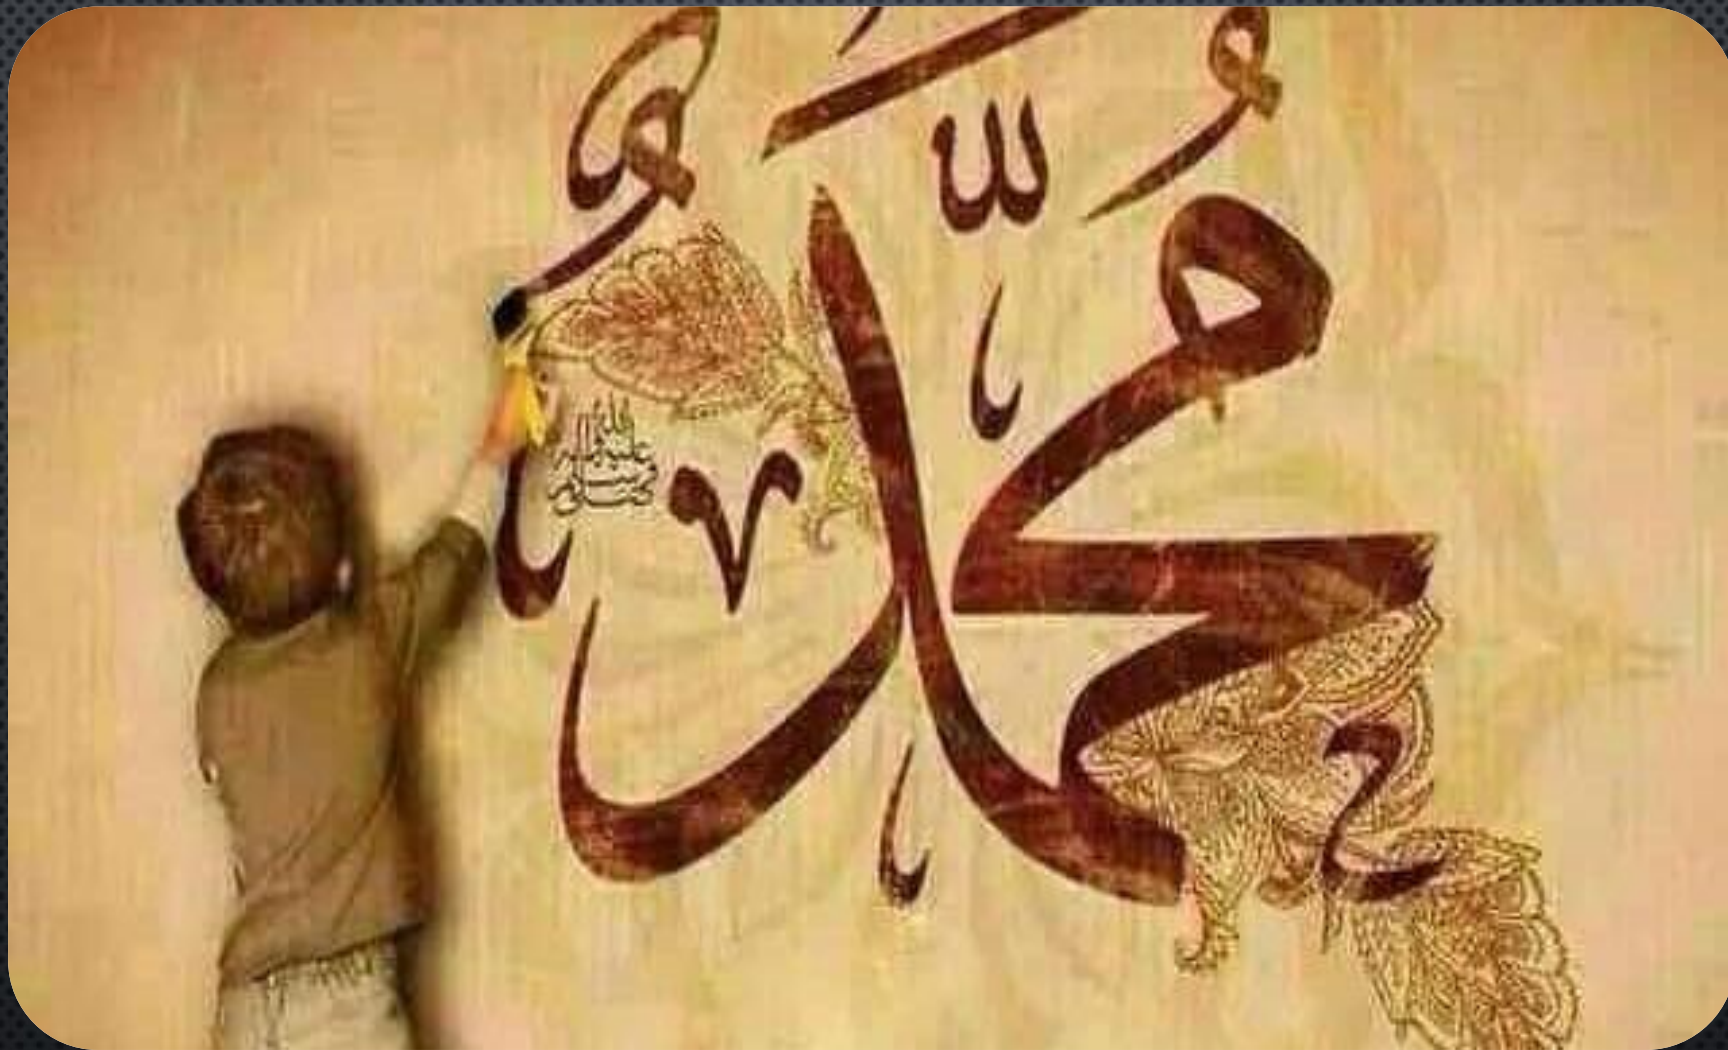 محمد
صلى الله عليه وآله وسلم